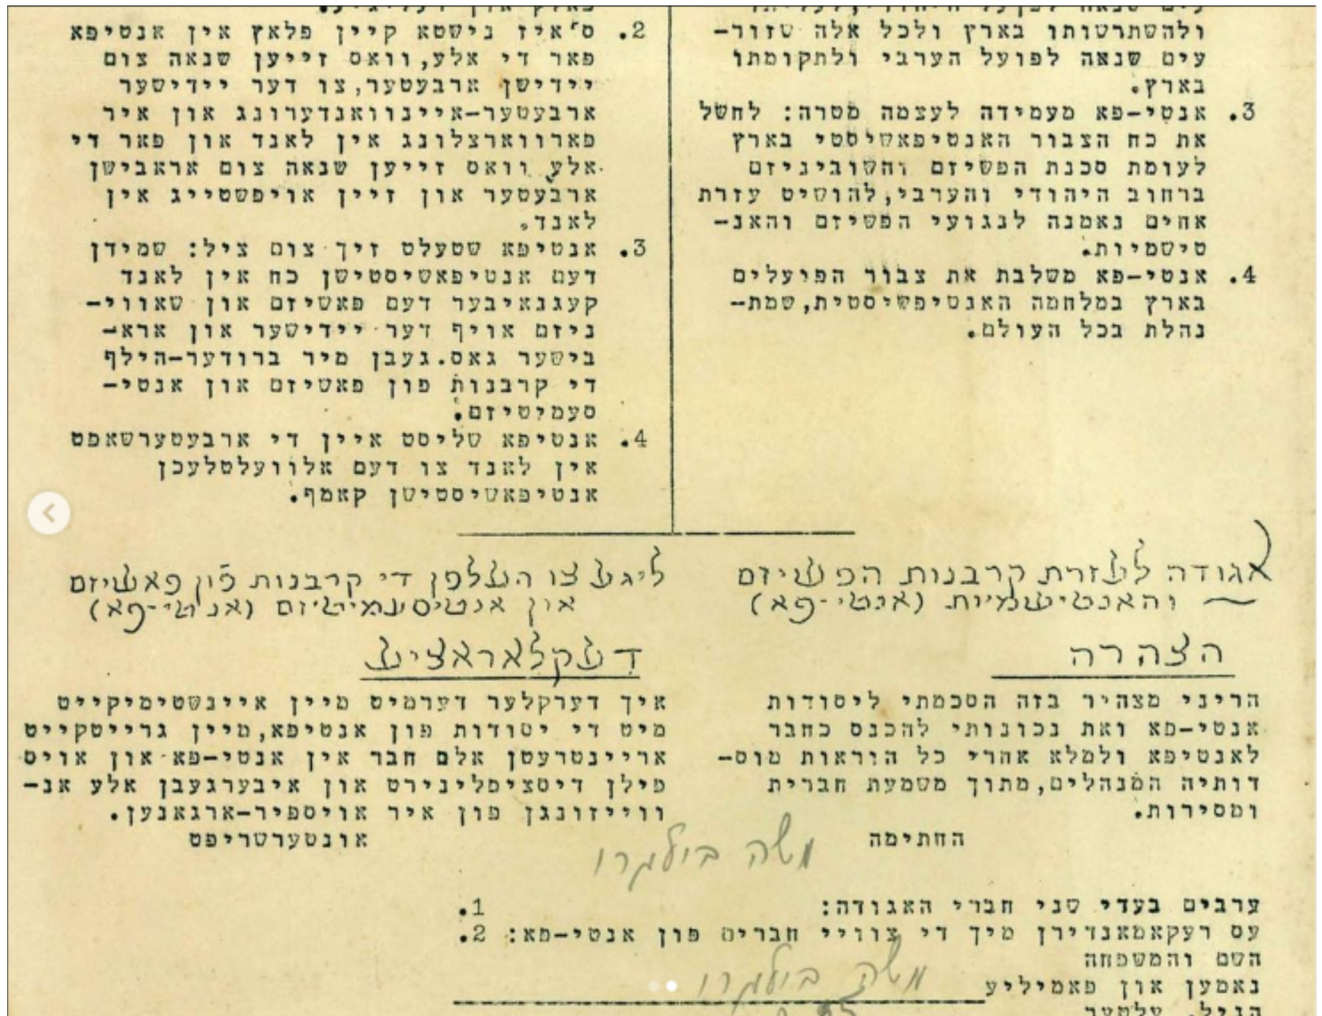 ולהשתרשותו בארץ ולכל אלה שזור-
עים שנאה לפועל הערבי ולתקומתו
בארץ.
3. אנטי-פא מעמידה לעצמה מטרה: לחשל
את כח הצבור האנטיפאשיסטי בארץ
לעומת סכנת הפשיזם והשוביניזם
ברחוב היהודי והערבי,להושיט עזרת
אחים נאמנה לנגועי הפשיזם והאנ-
טישמיות.
4. אנטי-פא משלבת את צבור הפועלים
בארץ במלחמה האנטיפשיסטית,שמת-
נהלת בכל העולם.
2. ס'איז נישטא קיין פלאץ אין אנטיפא
פאר די אלע,וואס זייען שנאה צום
יידישן ארבעטער,צו דער יידישער
ארבעטער-איינוואנדערונג און איר
פארווארצלונג אין לאנד און פאר די
אלע וואס זייען שנאה צום אראבישן
ארבעטער און זיין אויפשטייג אין
לאנד.
3. אנטיפא שטעלט זיך צום ציל: שמידן
דעם אנטיפאשיסטישן כח אין לאנד
קעגנאיבער דעם פאשיזם און שאווי-
ניזם אויף דער יידישער און ארא-
בישער גאס.געבן מיר ברודער-הילף
די קרבנות פון פאשיזם און אנטי-
סעמיטיזם.
4. אנטיפא שליסט איין די ארבעטערשאפט
אין לאנד צו דעם אלוועלטלעכן
אנטיפאשיסטישן קאמף.
אגודה לעזרת קרבנות הפשיזם
והאנטישמיות (אנטי-פא)
הצהרה
הריני מצהיר בזה הסכמתי ליסודות
אנטי-פא ואת נכונותי להכנס כחבר
לאנטיפא ולמלא אחרי כל הוראות מוס-
דותיה המנהלים,מתוך משמעת חברית
ומסירות.
החתימה
ליגע צו העלפן די קרבנות פון פאשיזם
און אנטיסעמיטיזם (אנטי-פא)
דעקלאראציע
איך דערקלער דערמיט מיין איינשטימיקייט
מיט די יסודות פון אנטיפא,מיין גרייטקייט
אריינטרעטן אלס חבר אין אנטי-פא און אויס
פילן דיסציפלינירט און איבערגעבן אלע אנ-
ווייזונגן פון איר אויספיר-ארגאנען.
אונטערשריפט
משה
ערבים בעדי שני חברי האגודה: 1.
עס רעקאמאנדירן מיך די צוויי חברים פון אנטי-פא: 2.
השם והמשפחה
נאמען און פאמיליע משה
הגיל. עלטער